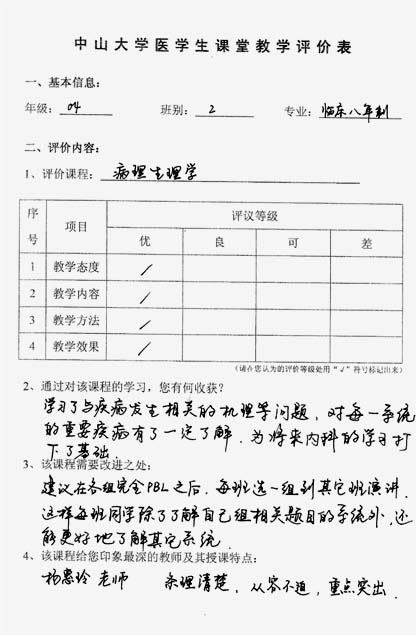 中山大学医学生课堂教学评价表
一、基本信息：
年级：04 班别：2 专业：临床八年制
二、评价内容：
1、评价课程：病理生理学
序号 项目 评议等级
优 良 可 差
1 教学态度 /
2 教学内容 /
3 教学方法 /
4 教学效果 /
（请在您认为的评价等级处用“√”符号标记出来）
2、通过对该课程的学习，您有何收获？
学习了与疾病发生相关的机理等问题，对每一系统
的重要疾病有了一定了解．为将来内科的学习打
下了基础．
3、该课程需要改进之处：
建议在各组完全PBL之后，每班选一组到其它班演讲．
这样每班同学除了了解自己组相关题目的系统外，还
能更好地了解其它系统．
4、该课程给您印象最深的教师及其授课特点：
杨惠玲老师 条理清楚．从容不迫，重点突出．